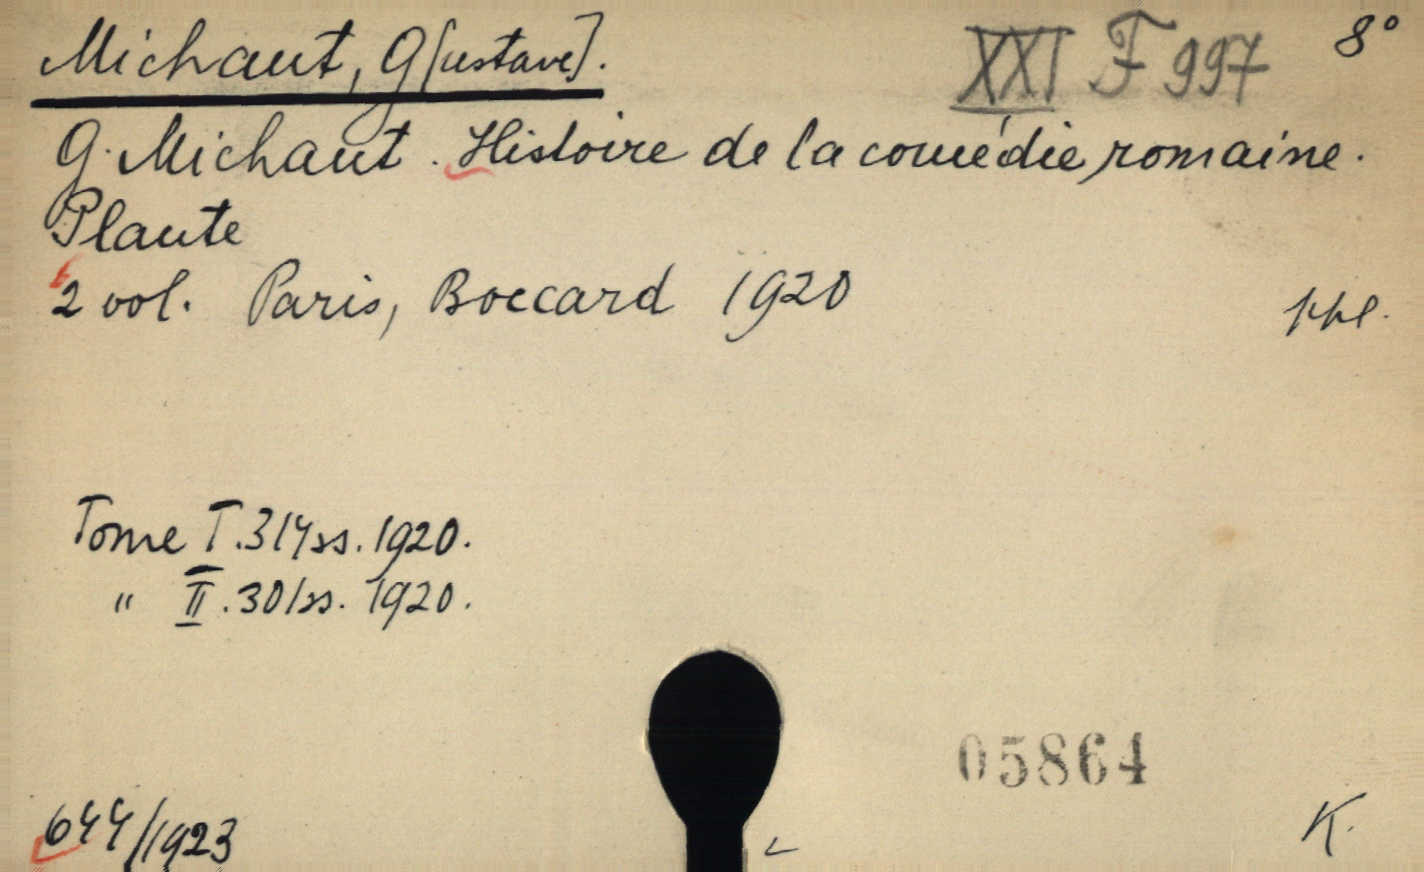 Michaut, G[ustave]. XXI F 997 8°
G. Michaut. Histoire de la comédie romaine.
Plaute
2 vol. Paris, Boccard 1920
Tome I. 314 ss. 1920.
" II. 301 ss. 1920.
05864
644/1923 K.